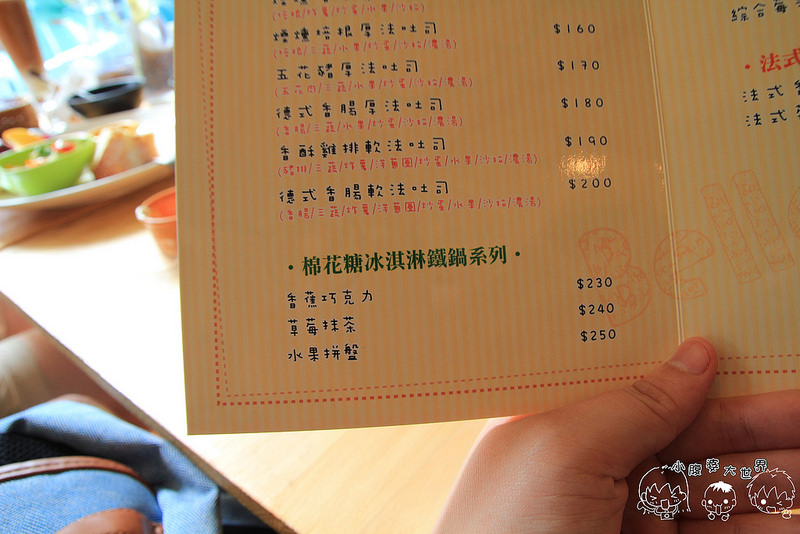 煙燻培根厚法吐司 $160
(培根/三蔬/水果/炒蛋/沙拉/濃湯)
五花豬厚法吐司 $170
(五花肉/三蔬/水果/炒蛋/沙拉/濃湯)
德式香腸厚法吐司 $180
(香腸/三蔬/水果/炒蛋/沙拉/濃湯)
香酥雞排軟法吐司 $190
(雞排/三蔬/炸薯/洋蔥圈/炒蛋/水果/沙拉/濃湯)
德式香腸軟法吐司 $200
(香腸/三蔬/炸薯/洋蔥圈/炒蛋/水果/沙拉/濃湯)
・棉花糖冰淇淋鐵鍋系列・
香蕉巧克力 $230
草莓抹茶 $240
水果拼盤 $250
綜合莓
・法式
法式
法式
Bell
小腹婆大世界